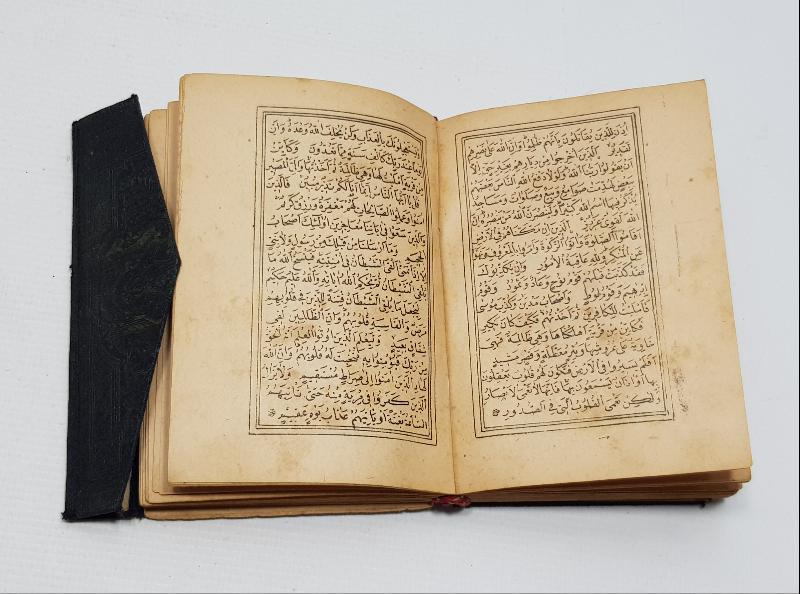 اُذِنَ لِلَّذِينَ يُقَاتَلُونَ بِاَنَّهُمْ ظُلِمُوا وَاِنَّ اللهَ عَلَى نَصْرِهِمْ
لَقَدِيرٌ اَلَّذِينَ اُخْرِجُوا مِنْ دِيَارِهِمْ بِغَيْرِ حَقٍّ اِلَّا
اَنْ يَقُولُوا رَبُّنَا اللهُ وَلَوْلَا دَفْعُ اللهِ النَّاسَ بَعْضَهُمْ
بِبَعْضٍ لَهُدِّمَتْ صَوَامِعُ وَبِيَعٌ وَصَلَوَاتٌ وَمَسَاجِدُ
يُذْكَرُ فِيهَا اسْمُ اللهِ كَثِيرًا وَلَيَنْصُرَنَّ اللهُ مَنْ يَنْصُرُهُ اِنَّ
اللهَ لَقَوِيٌّ عَزِيزٌ اَلَّذِينَ اِنْ مَكَّنَّاهُمْ فِي الْاَرْضِ
اَقَامُوا الصَّلٰوةَ وَاٰتَوُا الزَّكٰوةَ وَاَمَرُوا بِالْمَعْرُوفِ وَنَهَوْا
عَنِ الْمُنْكَرِ وَلِلّٰهِ عَاقِبَةُ الْاُمُورِ وَاِنْ يُكَذِّبُوكَ
فَقَدْ كَذَّبَتْ قَبْلَهُمْ قَوْمُ نُوحٍ وَعَادٌ وَثَمُودُ وَقَوْمُ
اِبْرٰهِيمَ وَقَوْمُ لُوطٍ وَاَصْحَابُ مَدْيَنَ وَكُذِّبَ مُوسٰى
فَاَمْلَيْتُ لِلْكَافِرِينَ ثُمَّ اَخَذْتُهُمْ فَكَيْفَ كَانَ نَكِيرِ
فَكَاَيِّنْ مِنْ قَرْيَةٍ اَهْلَكْنَاهَا وَهِيَ ظَالِمَةٌ فَهِيَ
خَاوِيَةٌ عَلَى عُرُوشِهَا وَبِئْرٍ مُعَطَّلَةٍ وَقَصْرٍ مَشِيدٍ
اَفَلَمْ يَسِيرُوا فِي الْاَرْضِ فَتَكُونَ لَهُمْ قُلُوبٌ يَعْقِلُونَ
بِهَا اَوْ اٰذَانٌ يَسْمَعُونَ بِهَا فَاِنَّهَا لَا تَعْمَى الْاَبْصَارُ
وَلٰكِنْ تَعْمَى الْقُلُوبُ الَّتِي فِي الصُّدُورِ
وَيَسْتَعْجِلُونَكَ بِالْعَذَابِ وَلَنْ يُخْلِفَ اللهُ وَعْدَهُ وَاِنَّ
يَوْمًا عِنْدَ رَبِّكَ كَاَلْفِ سَنَةٍ مِمَّا تَعُدُّونَ وَكَاَيِّنْ
مِنْ قَرْيَةٍ اَمْلَيْتُ لَهَا وَهِيَ ظَالِمَةٌ ثُمَّ اَخَذْتُهَا وَاِلَيَّ الْمَصِيرُ
قُلْ يَا اَيُّهَا النَّاسُ اِنَّمَا اَنَا لَكُمْ نَذِيرٌ مُبِينٌ فَالَّذِينَ
اٰمَنُوا وَعَمِلُوا الصَّالِحَاتِ لَهُمْ مَغْفِرَةٌ وَرِزْقٌ كَرِيمٌ
وَالَّذِينَ سَعَوْا فِي اٰيَاتِنَا مُعَاجِزِينَ اُولٰئِكَ اَصْحَابُ
الْجَحِيمِ وَمَا اَرْسَلْنَا مِنْ قَبْلِكَ مِنْ رَسُولٍ وَلَا نَبِيٍّ
اِلَّا اِذَا تَمَنَّى اَلْقَى الشَّيْطَانُ فِي اُمْنِيَّتِهِ فَيَنْسَخُ اللهُ مَا
يُلْقِي الشَّيْطَانُ ثُمَّ يُحْكِمُ اللهُ اٰيَاتِهِ وَاللهُ عَلِيمٌ حَكِيمٌ
لِيَجْعَلَ مَا يُلْقِي الشَّيْطَانُ فِتْنَةً لِلَّذِينَ فِي قُلُوبِهِمْ
مَرَضٌ وَالْقَاسِيَةِ قُلُوبُهُمْ وَاِنَّ الظَّالِمِينَ لَفِي
شِقَاقٍ بَعِيدٍ وَلِيَعْلَمَ الَّذِينَ اُوتُوا الْعِلْمَ اَنَّهُ الْحَقُّ
مِنْ رَبِّكَ فَيُؤْمِنُوا بِهِ فَتُخْبِتَ لَهُ قُلُوبُهُمْ وَاِنَّ اللهَ
لَهَادِ الَّذِينَ اٰمَنُوا اِلَى صِرَاطٍ مُسْتَقِيمٍ وَلَا يَزَالُ
الَّذِينَ كَفَرُوا فِي مِرْيَةٍ مِنْهُ حَتّٰى تَأْتِيَهُمُ
السَّاعَةُ بَغْتَةً اَوْ يَأْتِيَهُمْ عَذَابُ يَوْمٍ عَقِيمٍ